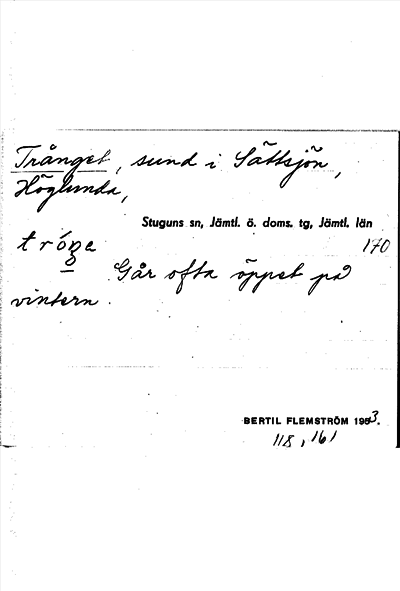 Trånget, sund i Sättsjön,
Höglunda,
Stuguns sn, Jämtl. ö. doms. tg, Jämtl. län
170
Går ofta öppet på
vintern.
BERTIL FLEMSTRÖM 1953.
118, 161